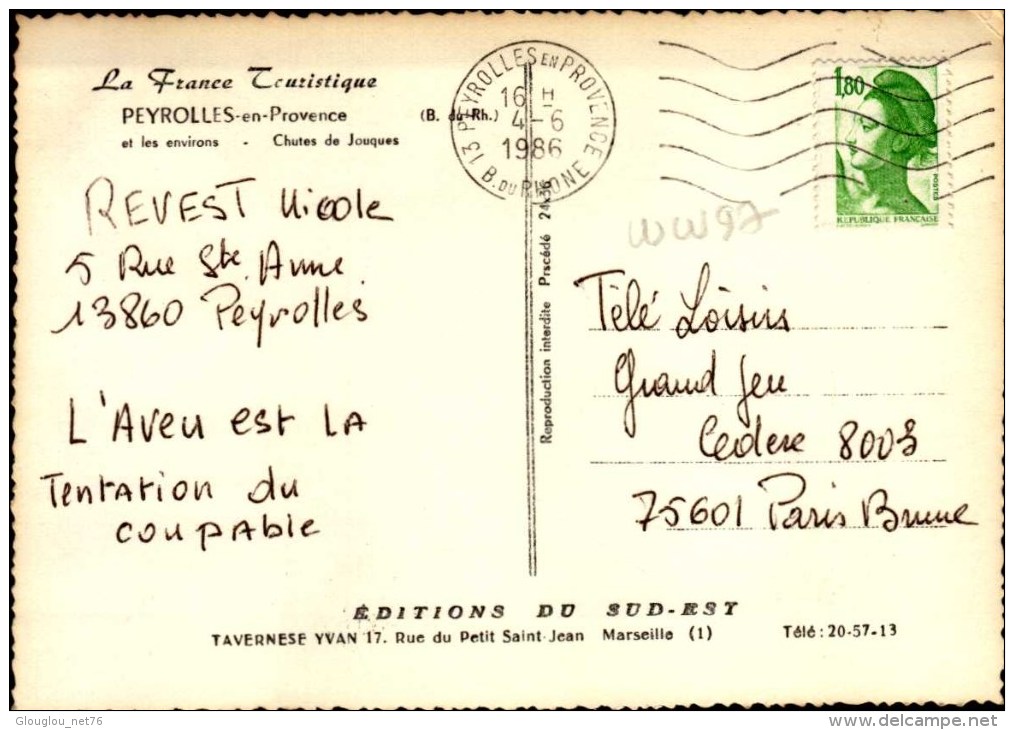 La France Touristique
PEYROLLES-en-Provence (B. du Rh.)
et les environs - Chutes de Jouques
13 PEYROLLES EN PROVENCE
16 H
4-6
1986
B. DU RHONE
1,80
POSTES
REPUBLIQUE FRANÇAISE
WW97
REVEST Nicole
5 Rue Ste Anne
13860 Peyrolles
L'Aveu est LA
Tentation du
coupable
Reproduction interdite Précédé 24x36
Télé Loisirs
Grand Jeu
Cedex 8003
75601 Paris Brune
ÉDITIONS DU SUD-EST
TAVERNESE YVAN 17. Rue du Petit Saint-Jean Marseille (1) Télé : 20-57-13
Glouglou_net76
delcampe.net